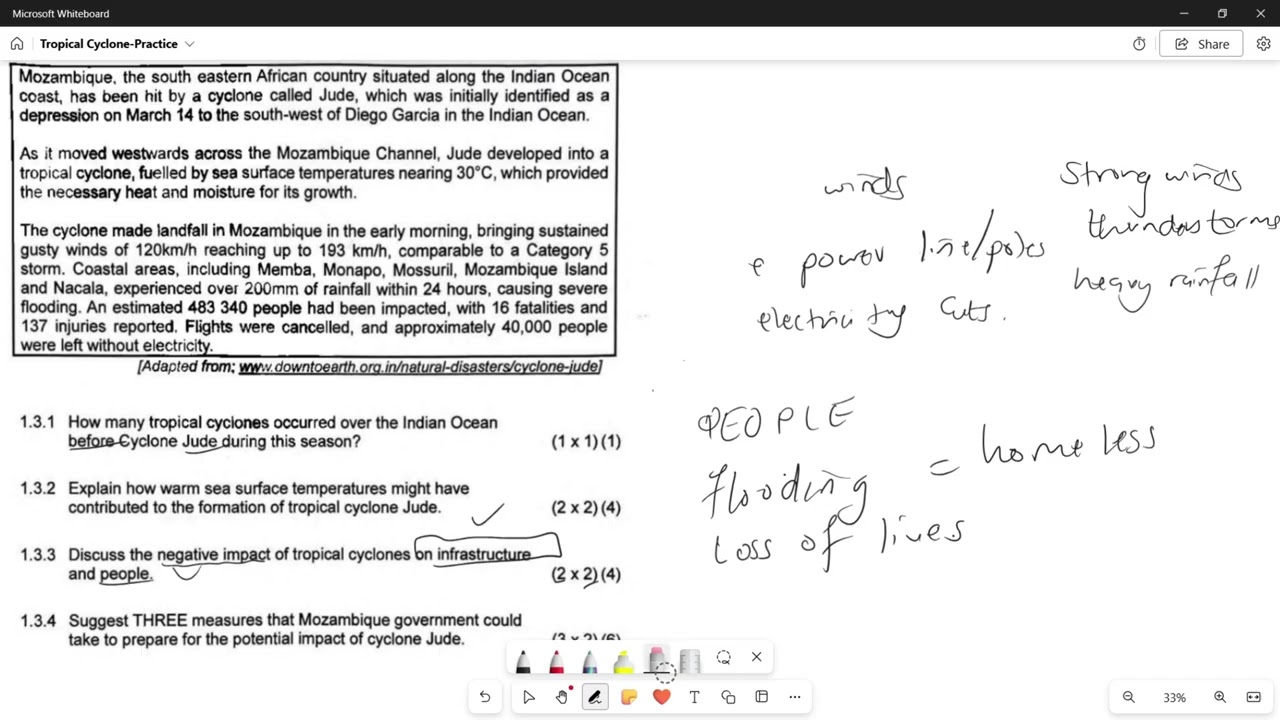 Microsoft Whiteboard
Tropical Cyclone-Practice
Share
Mozambique, the south eastern African country situated along the Indian Ocean
coast, has been hit by a cyclone called Jude, which was initially identified as a
depression on March 14 to the south-west of Diego Garcia in the Indian Ocean.
As it moved westwards across the Mozambique Channel, Jude developed into a
tropical cyclone, fuelled by sea surface temperatures nearing 30°C, which provided
the necessary heat and moisture for its growth.
The cyclone made landfall in Mozambique in the early morning, bringing sustained
gusty winds of 120km/h reaching up to 193 km/h, comparable to a Category 5
storm. Coastal areas, including Memba, Monapo, Mossuril, Mozambique Island
and Nacala, experienced over 200mm of rainfall within 24 hours, causing severe
flooding. An estimated 483 340 people had been impacted, with 16 fatalities and
137 injuries reported. Flights were cancelled, and approximately 40,000 people
were left without electricity.
[Adapted from; www.downtoearth.org.in/natural-disasters/cyclone-jude]
1.3.1 How many tropical cyclones occurred over the Indian Ocean
before Cyclone Jude during this season? (1 x 1) (1)
1.3.2 Explain how warm sea surface temperatures might have
contributed to the formation of tropical cyclone Jude. (2 x 2) (4)
1.3.3 Discuss the negative impact of tropical cyclones on infrastructure
and people. (2 x 2) (4)
1.3.4 Suggest THREE measures that Mozambique government could
take to prepare for the potential impact of cyclone Jude. (3 x 2) (6)
winds
power line/poles
electricity cuts.
Strong winds
thundastorms
heavy rainfall
PEOPLE
flooding = homeless
Loss of lives
33%